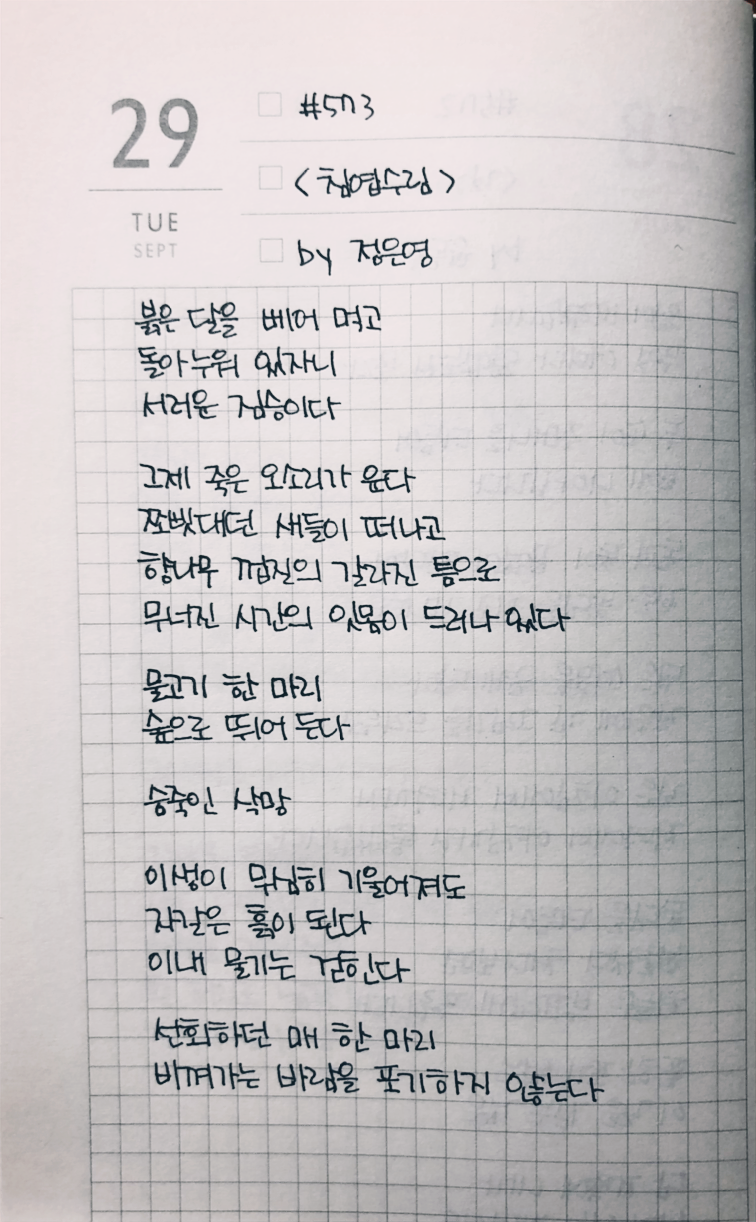 29
TUE
SEPT
#5113
<침엽수림>
by 정은영
붉은 달을 베어 먹고
돌아누워 있자니
서러운 짐승이다
그제 죽은 오소리가 운다
쪼삣대던 새들이 떠나고
향나무 껍질의 갈라진 틈으로
무너진 시간의 잇몸이 드러나 있다
물고기 한 마리
숲으로 뛰어 든다
숨죽인 삭망
이생이 무심히 기울어져도
자갈은 흙이 된다
이내 물기는 걷힌다
선회하던 매 한 마리
비껴가는 바람을 포기하지 않는다